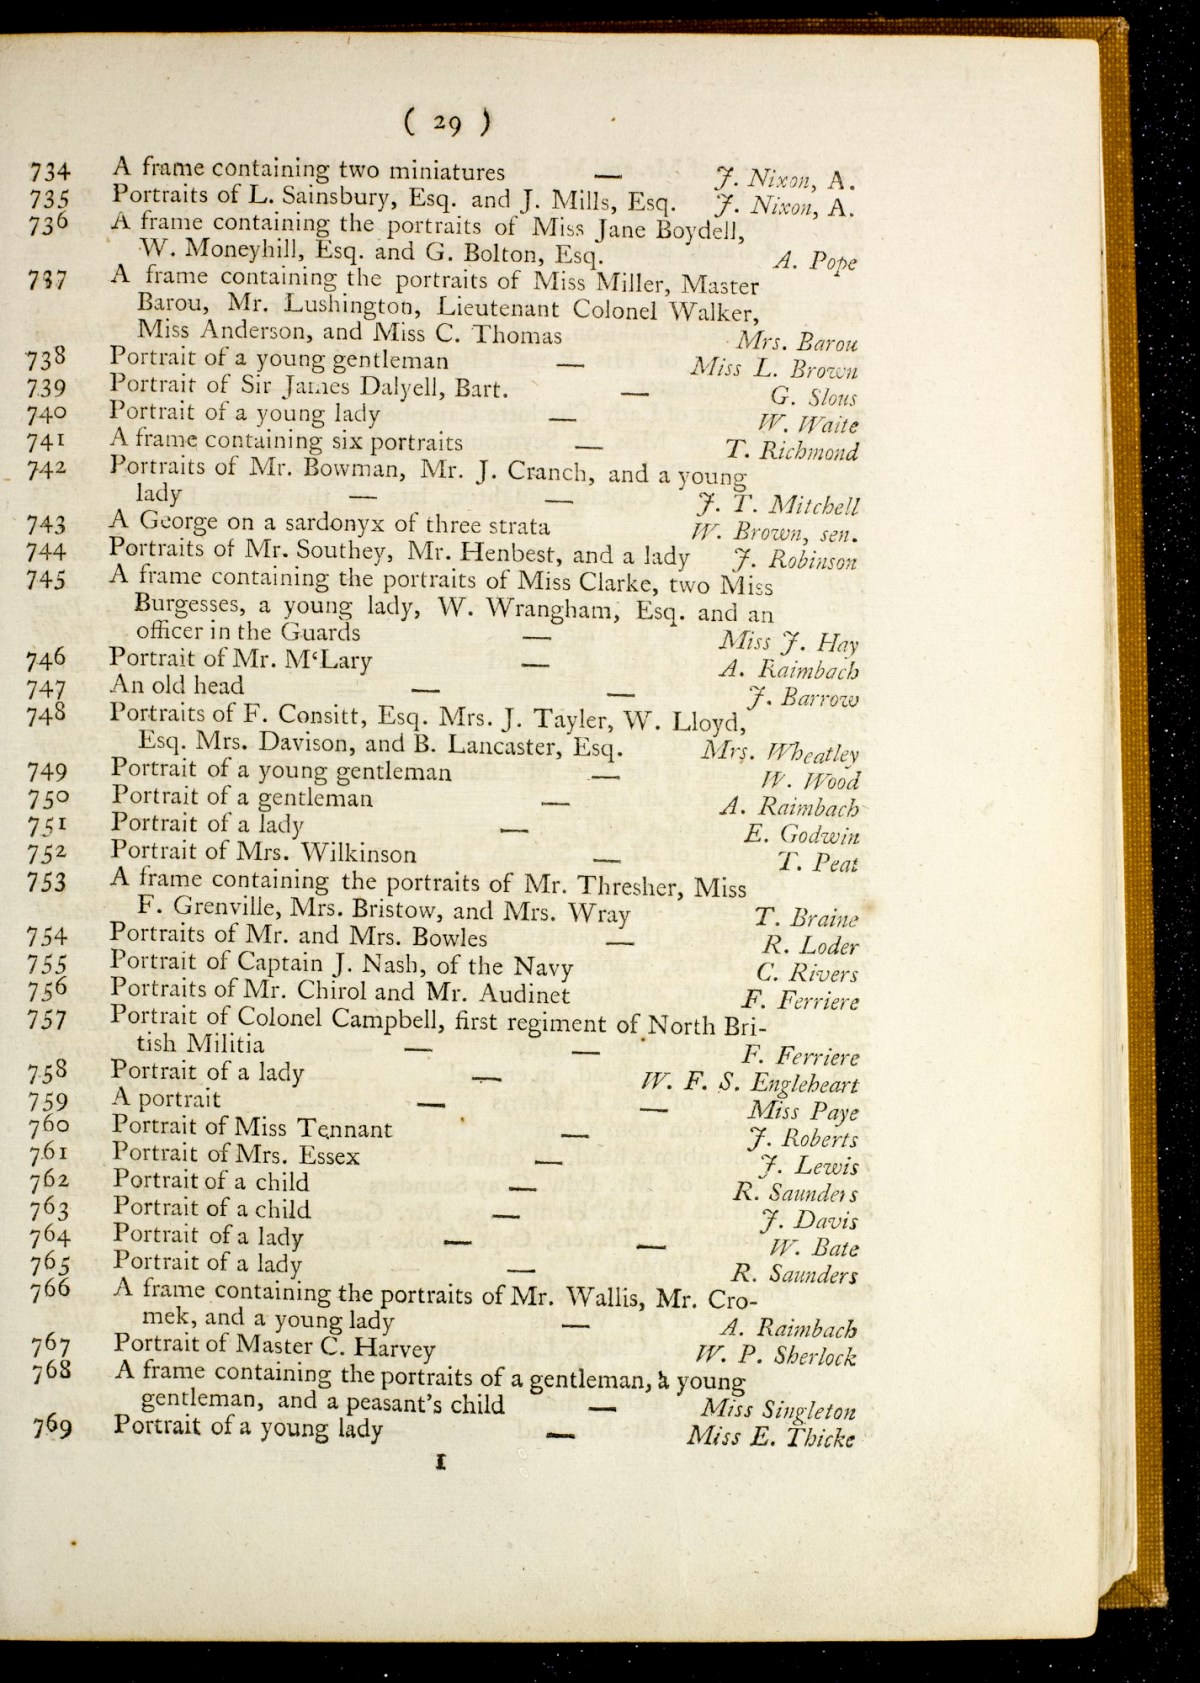 ( 29 )
734 A frame containing two miniatures — J. Nixon, A.
735 Portraits of L. Sainsbury, Esq. and J. Mills, Esq. J. Nixon, A.
736 A frame containing the portraits of Miss Jane Boydell,
W. Moneyhill, Esq. and G. Bolton, Esq. A. Pope
737 A frame containing the portraits of Miss Miller, Master
Barou, Mr. Lushington, Lieutenant Colonel Walker,
Miss Anderson, and Miss C. Thomas Mrs. Barou
738 Portrait of a young gentleman — Miss L. Brown
739 Portrait of Sir James Dalyell, Bart. — G. Slous
740 Portrait of a young lady — W. Waite
741 A frame containing six portraits — T. Richmond
742 Portraits of Mr. Bowman, Mr. J. Cranch, and a young
lady — — J. T. Mitchell
743 A George on a sardonyx of three strata W. Brown, sen.
744 Portraits of Mr. Southey, Mr. Henbest, and a lady J. Robinson
745 A frame containing the portraits of Miss Clarke, two Miss
Burgesses, a young lady, W. Wrangham, Esq. and an
officer in the Guards — Miss J. Hay
746 Portrait of Mr. M‘Lary — A. Raimbach
747 An old head — — J. Barrow
748 Portraits of F. Consitt, Esq. Mrs. J. Tayler, W. Lloyd,
Esq. Mrs. Davison, and B. Lancaster, Esq. Mrs. Wheatley
749 Portrait of a young gentleman — W. Wood
750 Portrait of a gentleman — A. Raimbach
751 Portrait of a lady — E. Godwin
752 Portrait of Mrs. Wilkinson — T. Peat
753 A frame containing the portraits of Mr. Thresher, Miss
F. Grenville, Mrs. Bristow, and Mrs. Wray T. Braine
754 Portraits of Mr. and Mrs. Bowles — R. Loder
755 Portrait of Captain J. Nash, of the Navy C. Rivers
756 Portraits of Mr. Chirol and Mr. Audinet F. Ferriere
757 Portrait of Colonel Campbell, first regiment of North Bri-
tish Militia — — F. Ferriere
758 Portrait of a lady — W. F. S. Engleheart
759 A portrait — — Miss Paye
760 Portrait of Miss Tennant — J. Roberts
761 Portrait of Mrs. Essex — J. Lewis
762 Portrait of a child — R. Saunders
763 Portrait of a child — J. Davis
764 Portrait of a lady — — W. Bate
765 Portrait of a lady — R. Saunders
766 A frame containing the portraits of Mr. Wallis, Mr. Cro-
mek, and a young lady — A. Raimbach
767 Portrait of Master C. Harvey W. P. Sherlock
768 A frame containing the portraits of a gentleman, a young
gentleman, and a peasant's child — Miss Singleton
769 Portrait of a young lady — Miss E. Thicke
I